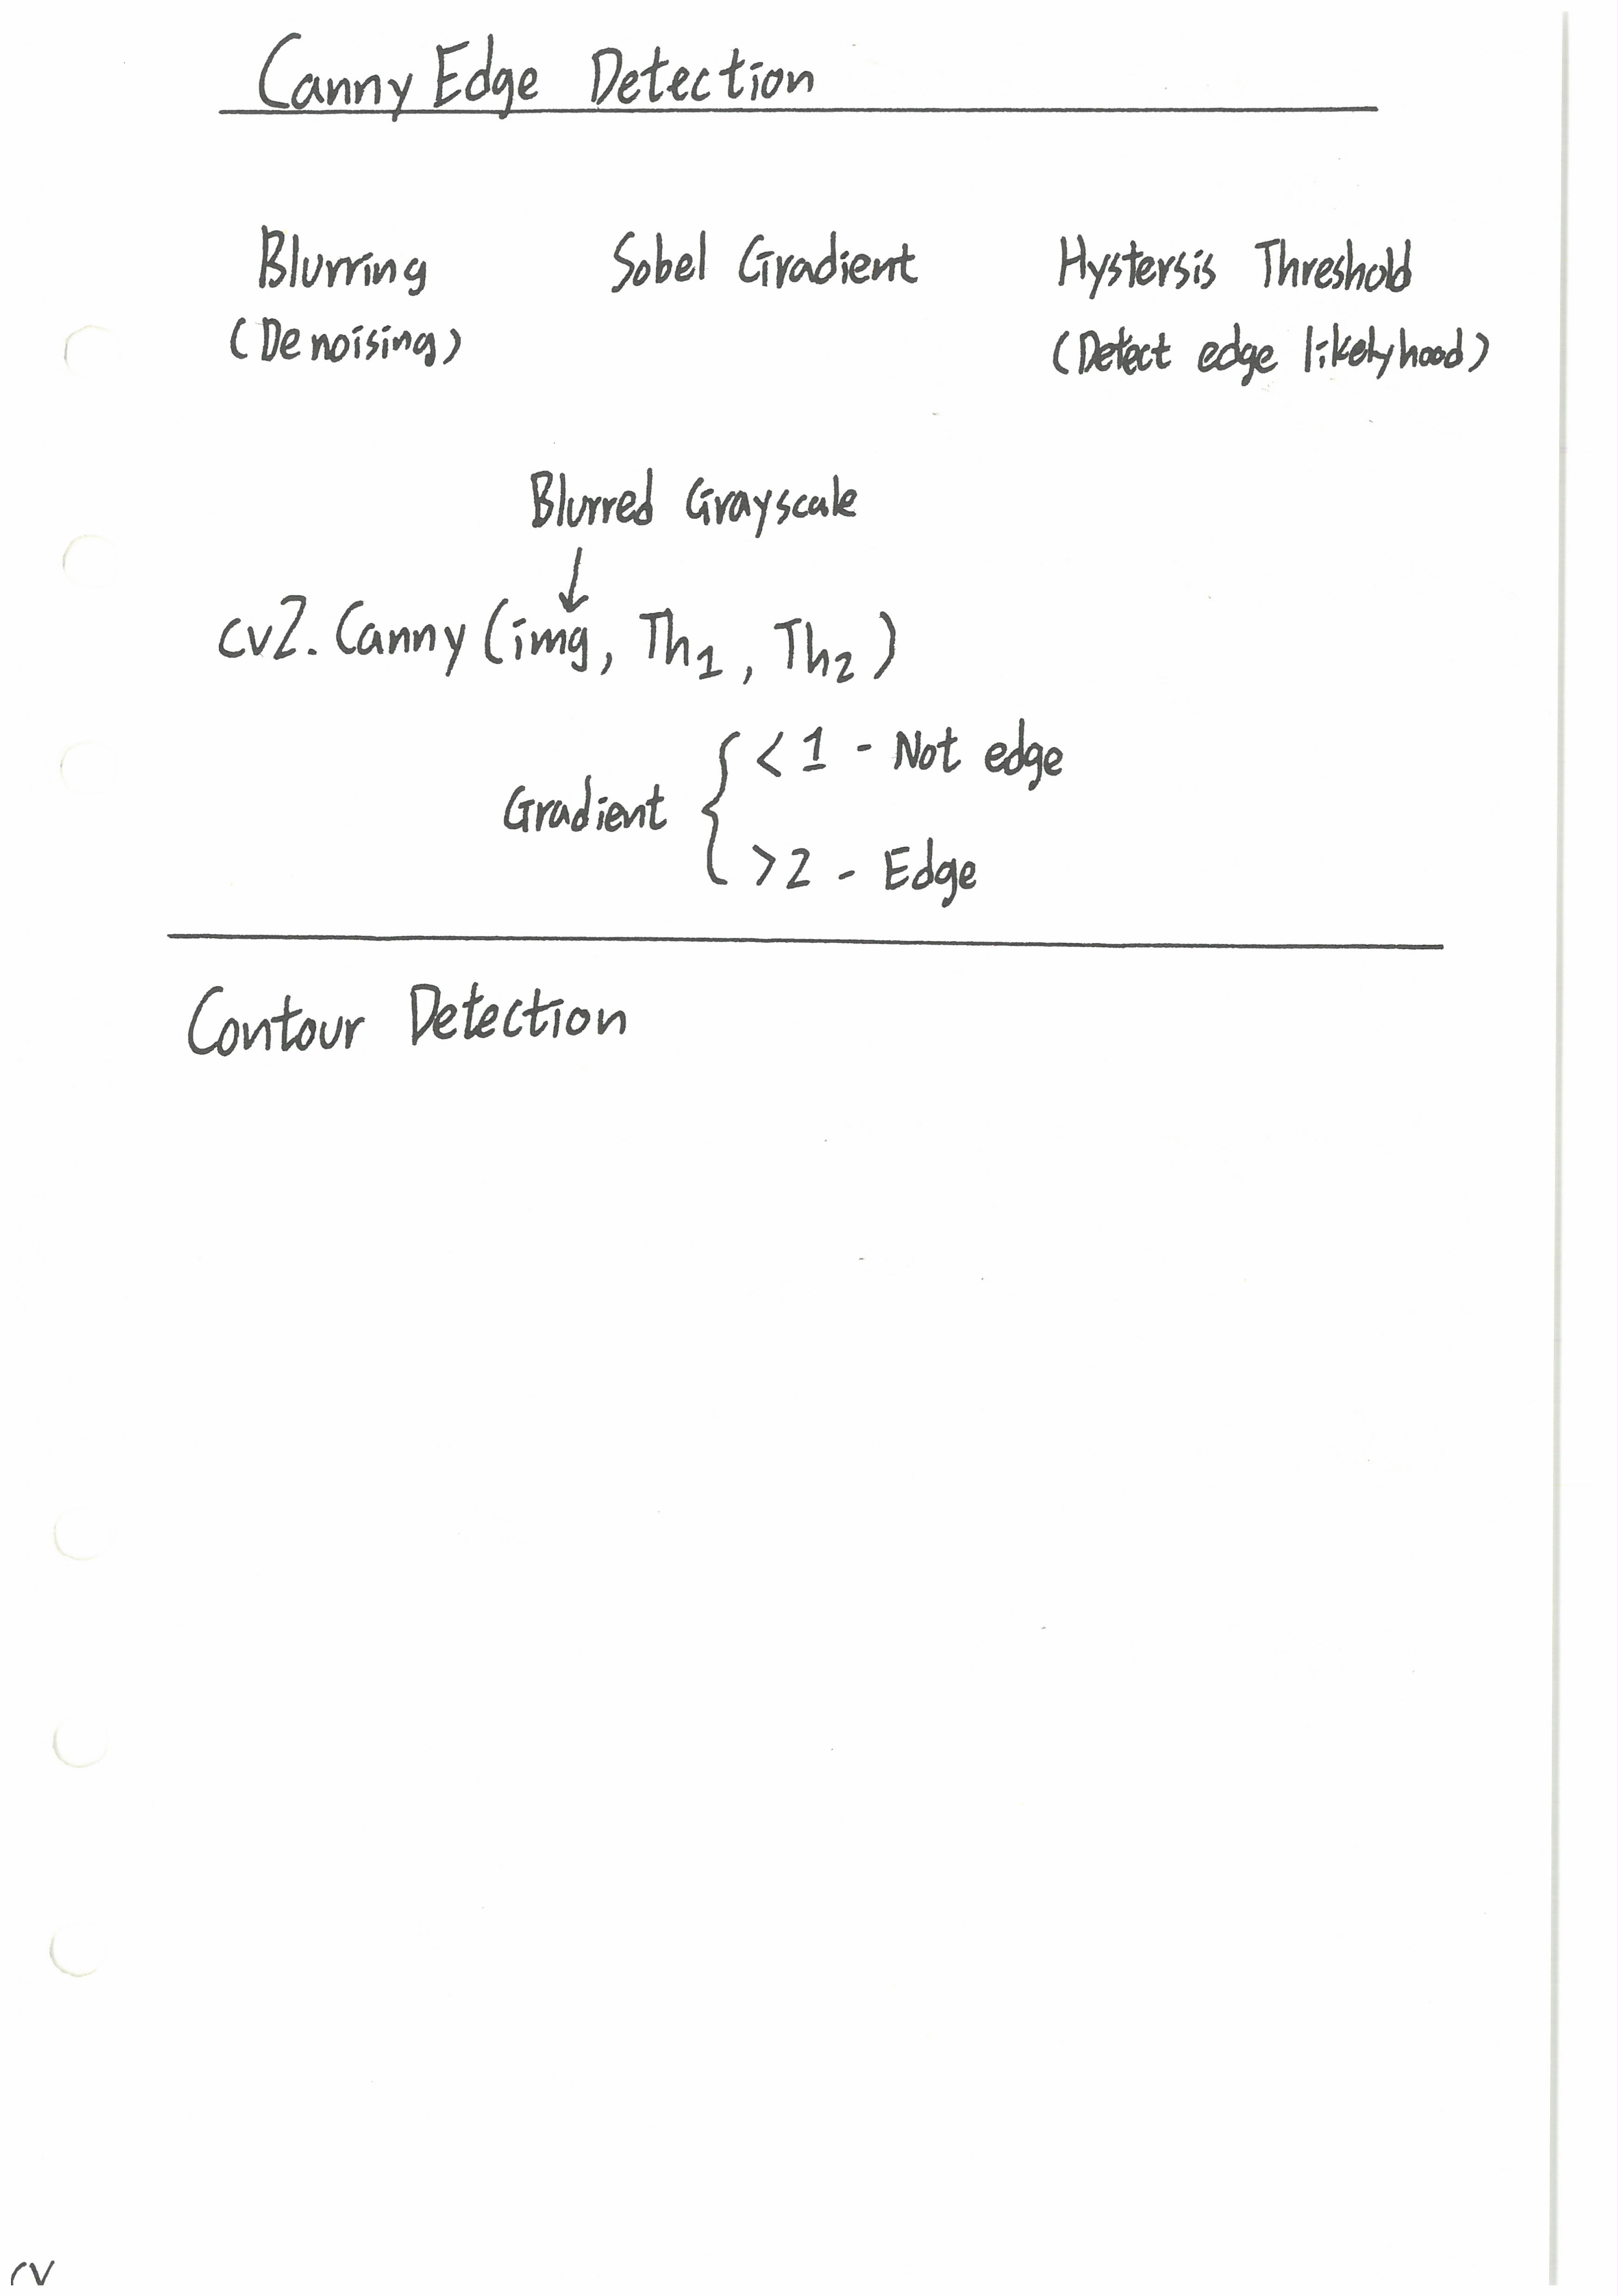 Canny Edge Detection
Blurring Sobel Gradient Hystersis Threshold
(Denoising) (Detect edge likelyhood)
Blurred Grayscale
↓
cv2.Canny(img, Th1, Th2)
Gradient { < 1 - Not edge
> 2 - Edge
Contour Detection
CV